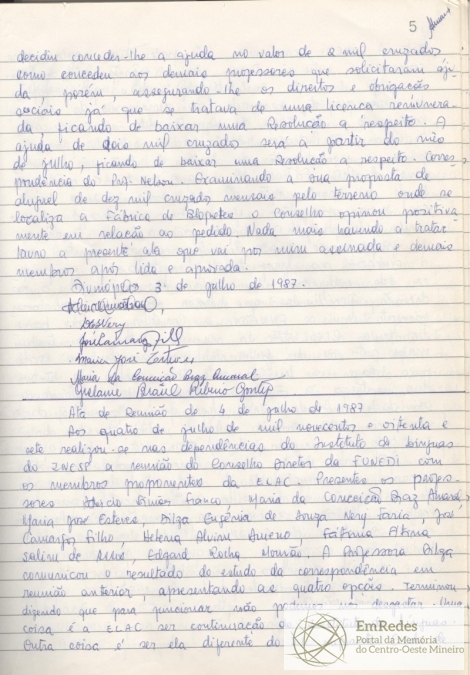 5
decidiu conceder-lhe a ajuda no valor de 2 mil cruzados
como concedeu aos demais professores que solicitaram aju
da, porém, assegurando-lhe os direitos e obrigações
sociais já que se tratava de uma licença remunera-
da, ficando de baixar uma Resolução a respeito. A
ajuda de dois mil cruzados será a partir do mês
de julho, ficando de baixar uma Resolução a respeito. Corres
pondência do Prof. Nelson. Examinando a sua proposta de
aluguel de dez mil cruzados mensais pelo terreno onde se
localiza a Fábrica de Blocketes o Conselho opinou positiva
mente em relação ao pedido. Nada mais havendo a tratar
lavro a presente ata que vai por mim assinada e demais
membros após lida e aprovada.
Divinópolis 3 de julho de 1987.
José Camargos Filho
Maria José Esteves
Maria da Conceição Braz Amaral
Ata de Reunião de 4 de julho de 1987
Aos quatro de julho de mil novecentos e oitenta e
sete realizou-se nas dependências do Instituto de Línguas
do INESP a reunião do Conselho Diretor da FUNEDI com
os membros proponentes da ELAC. Presentes os profes-
sores Franco, Maria da Conceição Braz Amaral
Maria José Esteves, Dilza Eugênia de Souza Nery Faria, José
Camargos Filho, Helena Alvim Ameno, Fátima
de Edgard Rocha Mourão. A Professora Dilza
comunicou o resultado do estudo da correspondência em
reunião anterior, apresentando as quatro opções. Terminou
dizendo que para funcionar não
coisa é a ELAC ser continuação do
Outra coisa é ser ela diferente do
EmRedes
Portal da Memória
do Centro-Oeste Mineiro